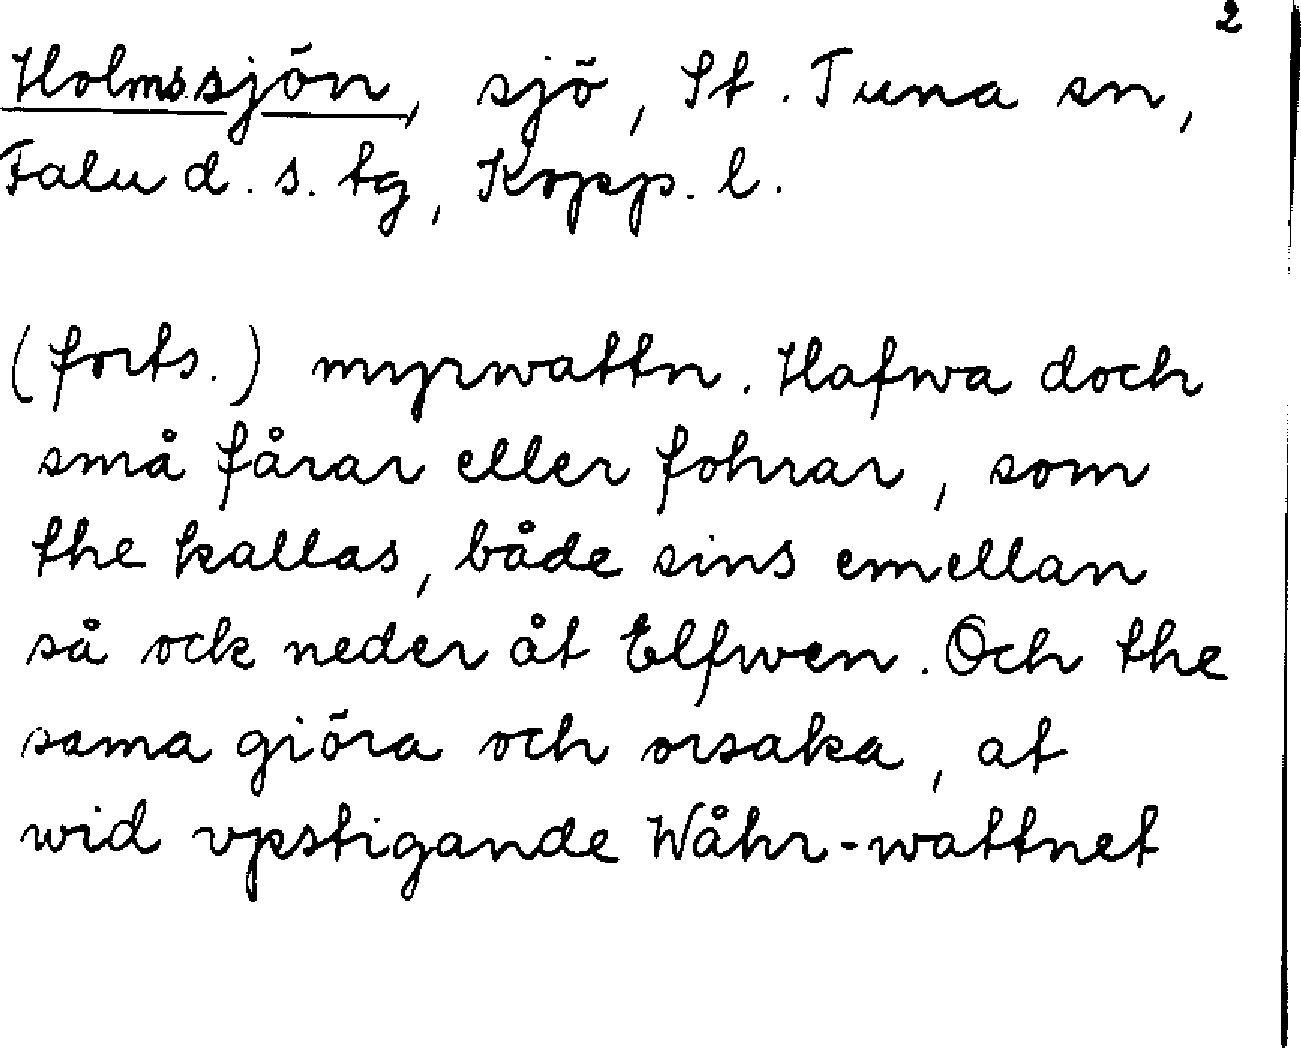 2
Holmssjön, sjö, St. Tuna sn,
Falu d. s. tg, Kopp. l.
(forts.) myrwattn. Hafwa doch
små fårar eller fohrar, som
the kallas, både sins emellan
så ock neder åt Elfwen. Och the
sama giöra och orsaka, at
wid vpstigande Wåhr-wattnet